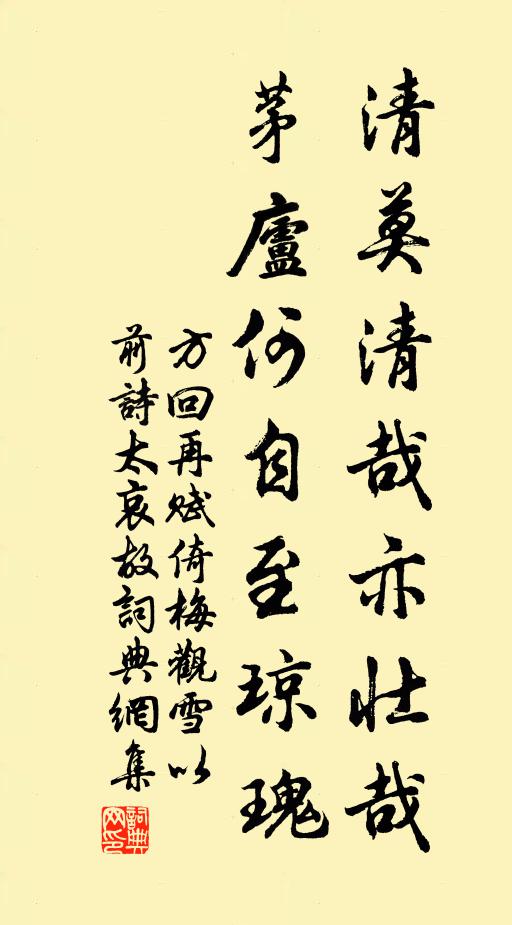 清莫清哉亦壯哉
茅廬何自至琼瑰
方回再赋倚梅觀雪以
前詩太哀故詞典網集
詞典網印